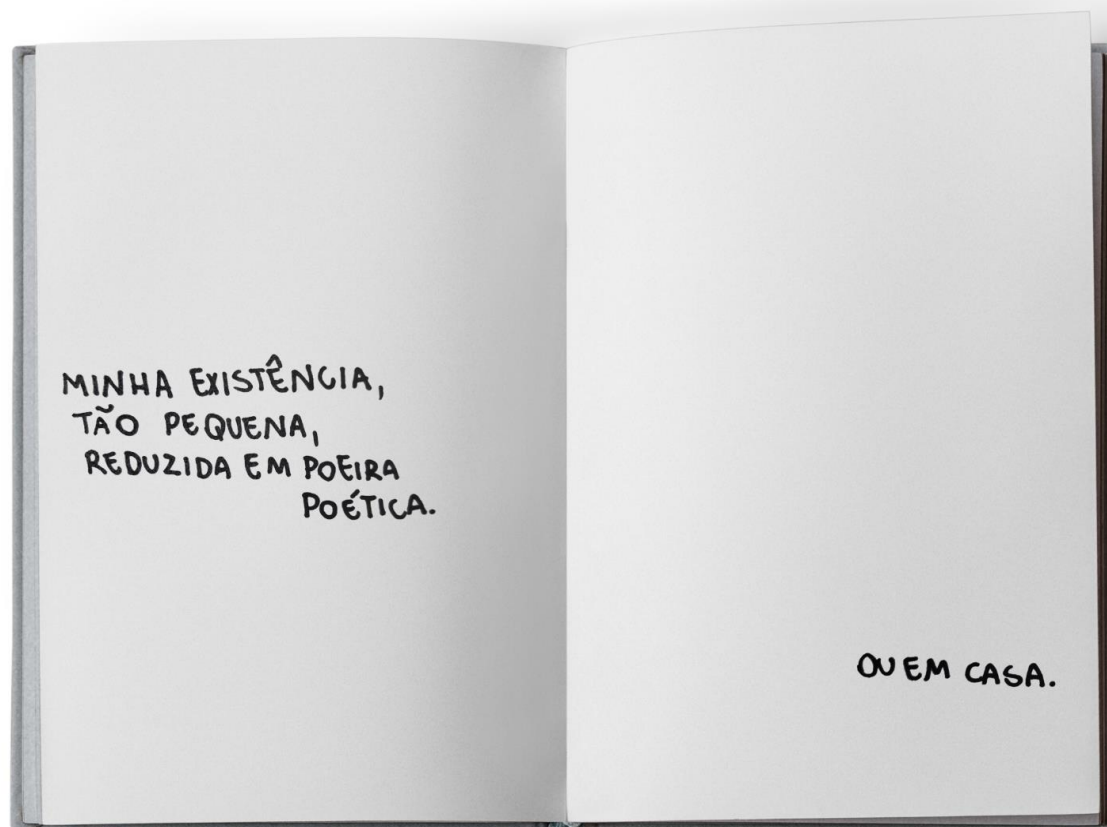 MINHA EXISTÊNCIA,
TÃO PEQUENA,
REDUZIDA EM POEIRA
POÉTICA.
OU EM CASA.